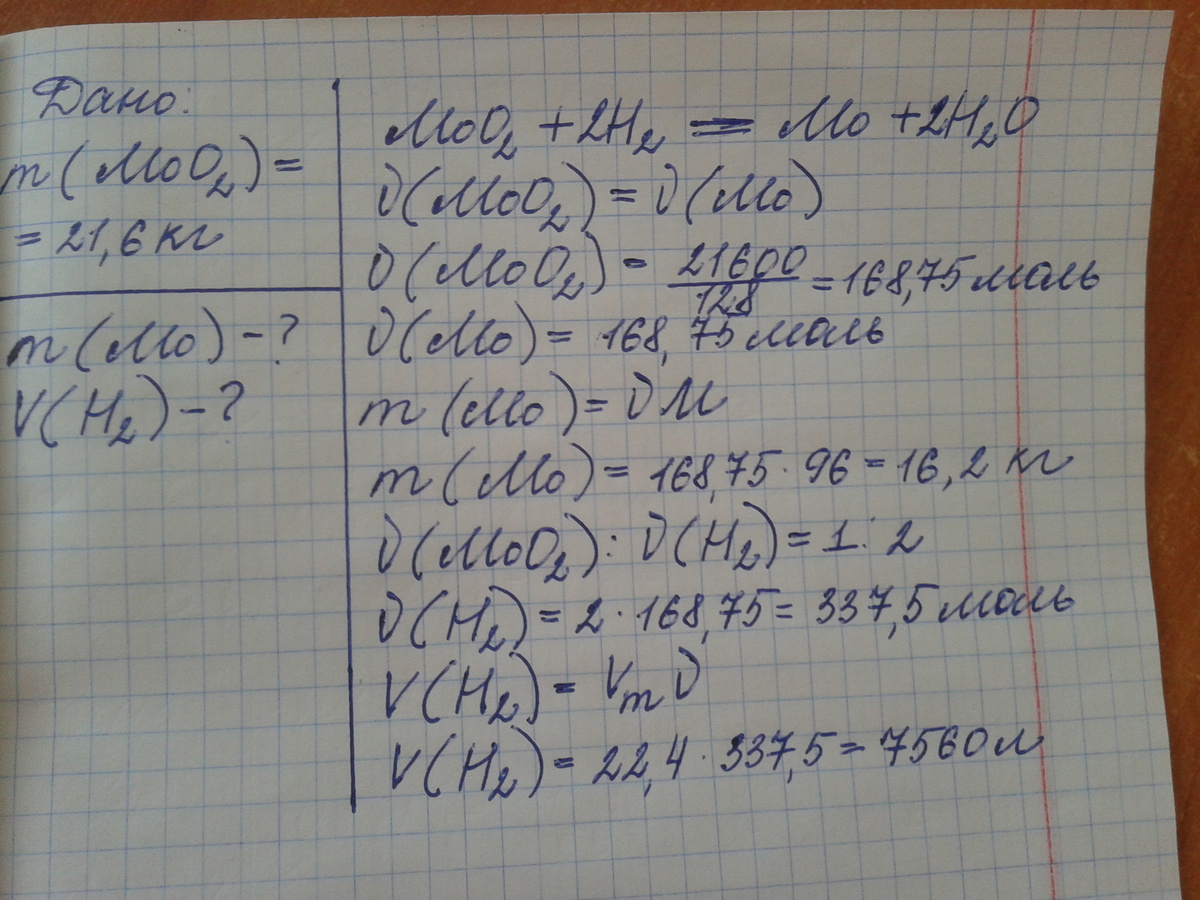 Дано:
m(MoO₂) =
= 21,6 кг
m(Mo) - ?
V(H₂) - ?
MoO₂ + 2H₂ = Mo + 2H₂O
ν(MoO₂) = ν(Mo)
ν(MoO₂) = 21600/128 = 168,75 моль
ν(Mo) = 168,75 моль
m(Mo) = νM
m(Mo) = 168,75 · 96 = 16,2 кг
ν(MoO₂) : ν(H₂) = 1 : 2
ν(H₂) = 2 · 168,75 = 337,5 моль
V(H₂) = Vmν
V(H₂) = 22,4 · 337,5 = 7560 л